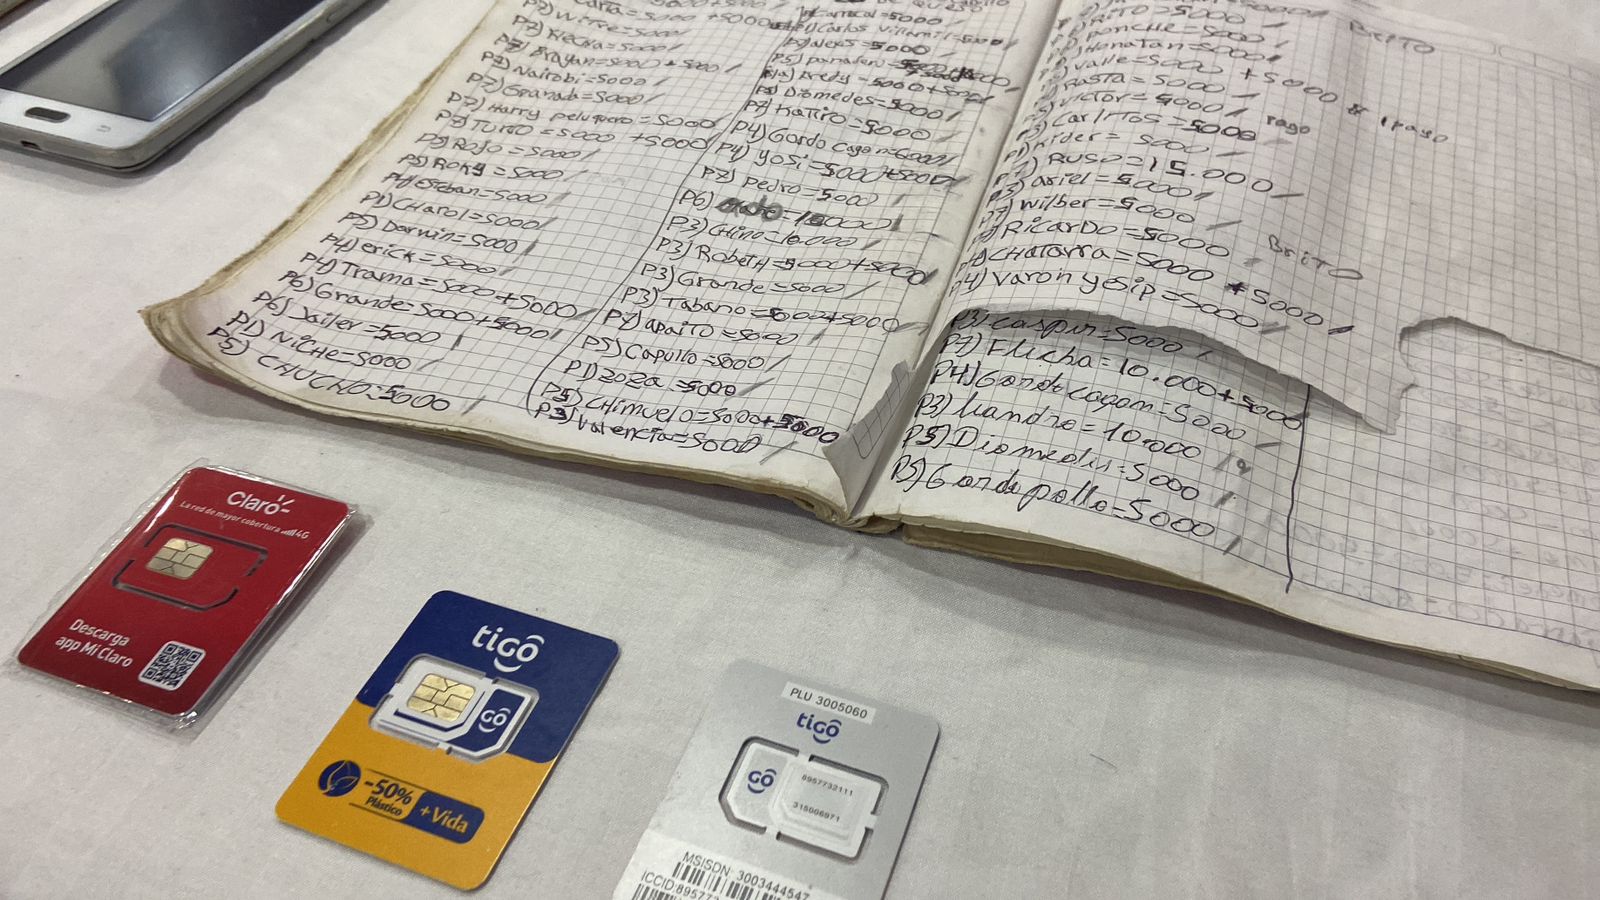 P7) Witre=5000
P7) Mecha=5000
Brayan=5000+5000
P7) Nairobi=5000
P7) Granada=5000
P7) Harry peluquero=5000
P3) Turro=5000 +5000
P3) Rojo=5000
P5) Roky=5000
P4) Esteban=5000
P1) CHarol=5000
P5) Darwin=5000
P4) erick=5000
P4) Trama=5000+5000
P6) Grande=5000+5000
P6) Jailer=5000
P1) NiCHe=5000
P5) CHUCHO=5000
=5000
Carlos Villamil=5000
alexs=5000
P5)
Fredy=5000+5000
Diomedes=5000
P7) Katiro=5000
P4) Gordo cagon=6000
P4) Yosi=5000+5000
P7) Pedro=5000
P6) =10000
P3) CHino=10.000
P3) RobetH=5000+5000
P3) Grande=5000
P3) Tabano=5000+5000
P7) apaiTo=5000
P5) Capullo=5000
P1) Zoza=5000
P5) CHimuelo=5000+5000
P3) Valencia=5000
BRiTO
RiTO=5000
ponche=5000
Honatan=5000
Valle=5000 +5000 1 pago
Rasta=5000
Victor=5000 pago
P3) Car/iTos=5000
Kider=5000
RUSO=15.000
ariel=5000
P7) Wilber=5000
RicarDo=5000 BRiTO
CHatarra=5000 +5000
P4) Varon yosip=5000
P3) caspir=5000
P7) Flecha=10.000+5000
P4) Gordo cagon=5000
P3) leandro=10.000
P5) Diomedes=5000
P5) Gordo pollo=5000
Claro
La red de mayor cobertura 4G
Descarga
app Mi Claro
tigo
GO
-50%
Plástico
+Vida
PLU 3005060
tigo
GO
8957732111
315006971
MSISDN: 3003444547
ICCID:89577